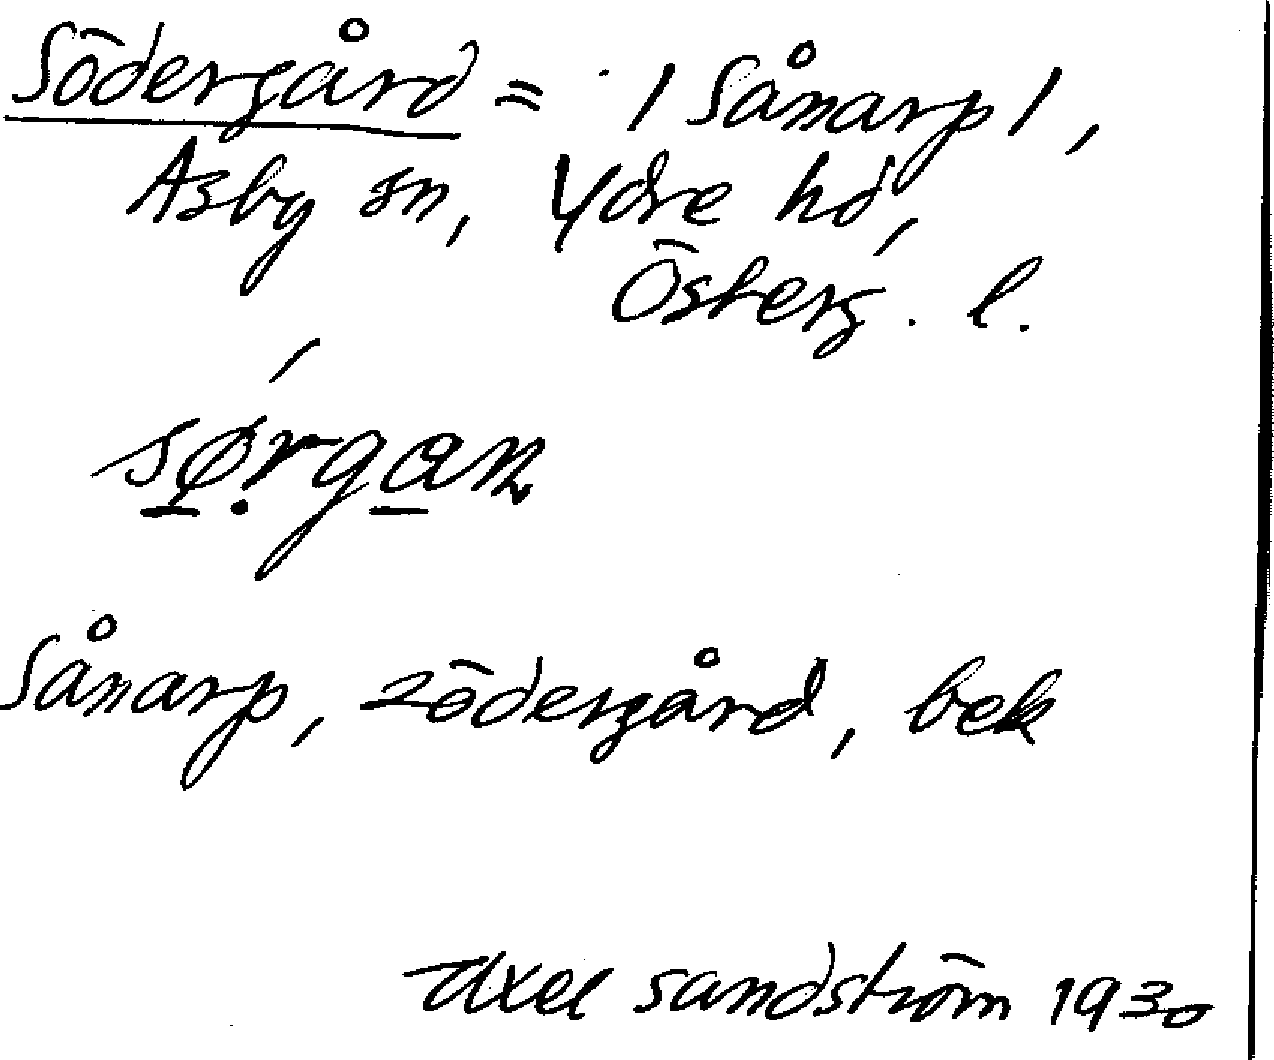 Södergård = / Sånarp /,
Asby sn, Ydre hd,
Österg. l.
sørgan
Sånarp, Södergård, bek
Axel Sandström 1930